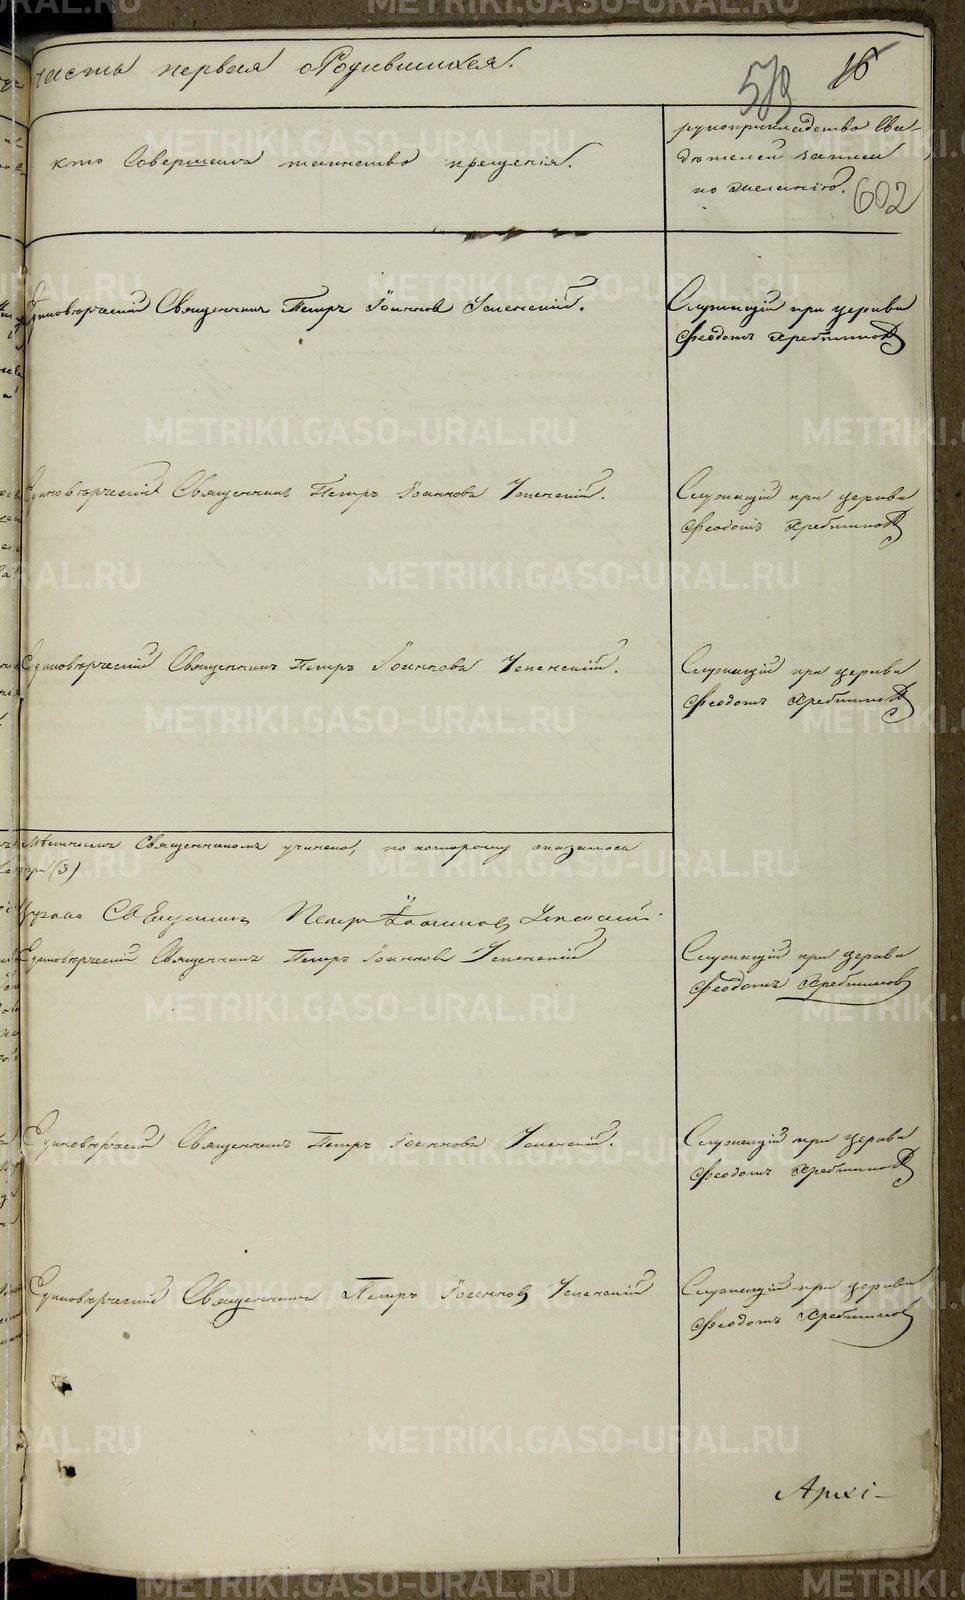 часть первая о Родившихся.
16
513
кто совершалъ таинство крещенія.
рукоприкладство сви-
дѣтелей записи
по желанію.
602
Единовѣрческій Священникъ Петръ Іоанновъ Успенскій.
Служащій при церкви
Феодотъ Хребтиковъ
Единовѣрческій Священникъ Петръ Іоанновъ Успенскій.
Служащій при церкви
Феодотъ Хребтиковъ
Единовѣрческій Священникъ Петръ Іоанновъ Успенскій.
Служащій при церкви
Феодотъ Хребтиковъ
мѣстнымъ Священникомъ учинено, по которому оказалось
(3)
Священникъ Петръ Іоанновъ Успенскій.
Единовѣрческій Священникъ Петръ Іоанновъ Успенскій
Служащій при церкви
Феодотъ Хребтиковъ
Единовѣрческій Священникъ Петръ Іоанновъ Успенскій.
Служащій при церкви
Феодотъ Хребтиковъ
Единовѣрческій Священникъ Петръ Іоанновъ Успенскій
Служащій при церкви
Феодотъ Хребтиковъ
Архі-
METRIKI.GASO-URAL.RU